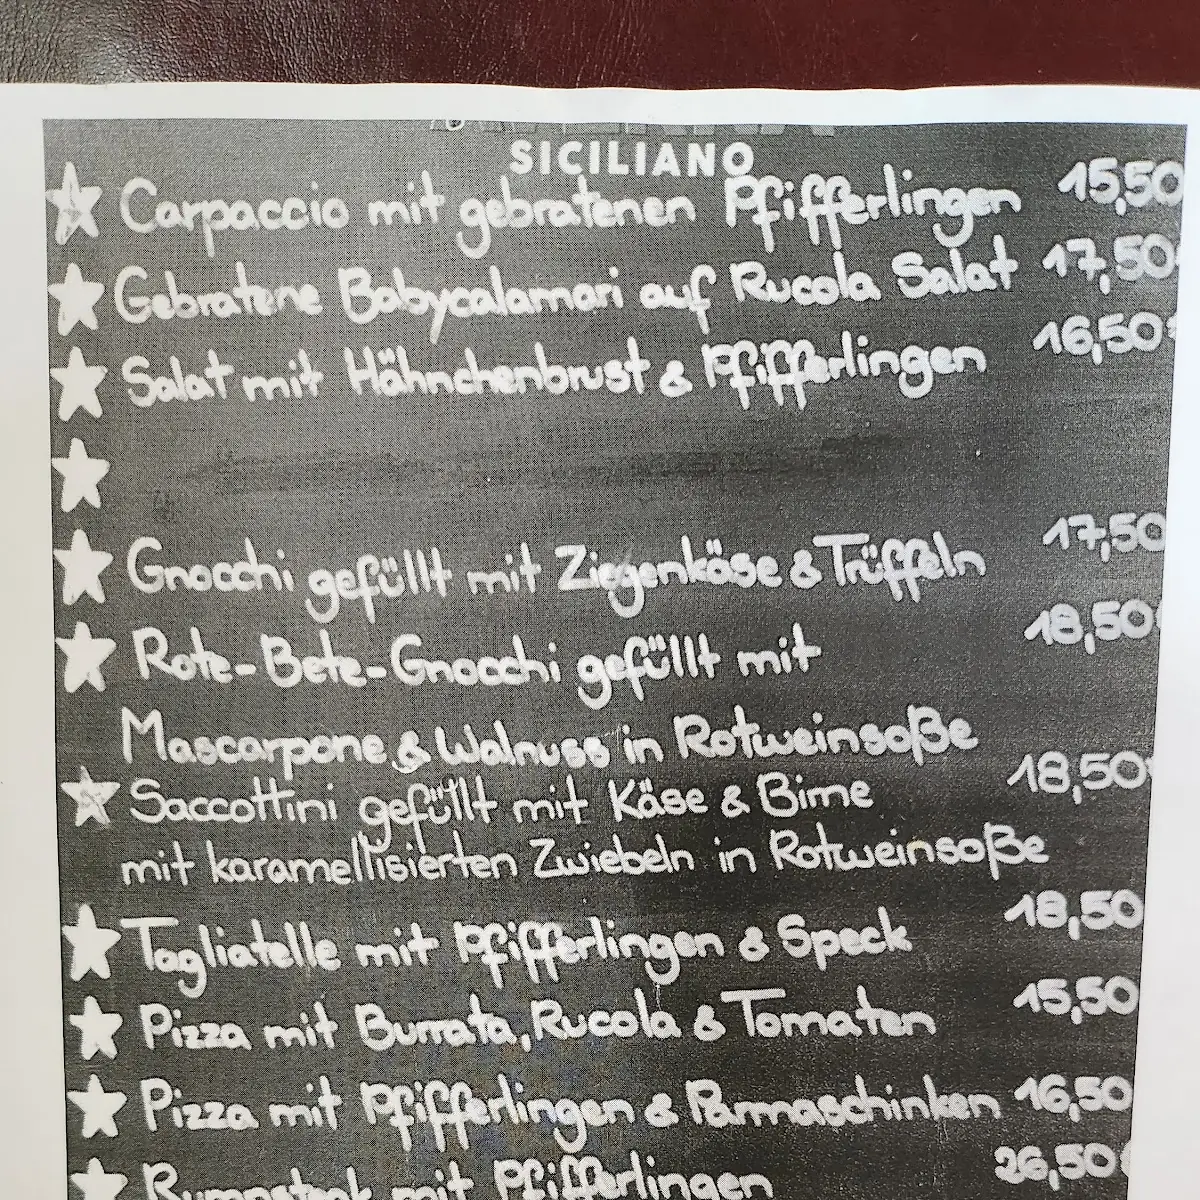 SICILIANO
Carpaccio mit gebratenen Pfifferlingen 15,50
Gebratene Babycalamari auf Rucola Salat 17,50
Salat mit Hähnchenbrust & Pfifferlingen 16,50
Gnocchi gefüllt mit Ziegenkäse & Trüffeln 17,50
Rote-Bete-Gnocchi gefüllt mit 18,50
Mascarpone & Walnuss in Rotweinsoße
Saccottini gefüllt mit Käse & Birne 18,50
mit karamellisierten Zwiebeln in Rotweinsoße
Tagliatelle mit Pfifferlingen & Speck 18,50
Pizza mit Burrata, Rucola & Tomaten 15,50
Pizza mit Pfifferlingen & Parmaschinken 16,50
Rumpsteak mit Pfifferlingen 26,50